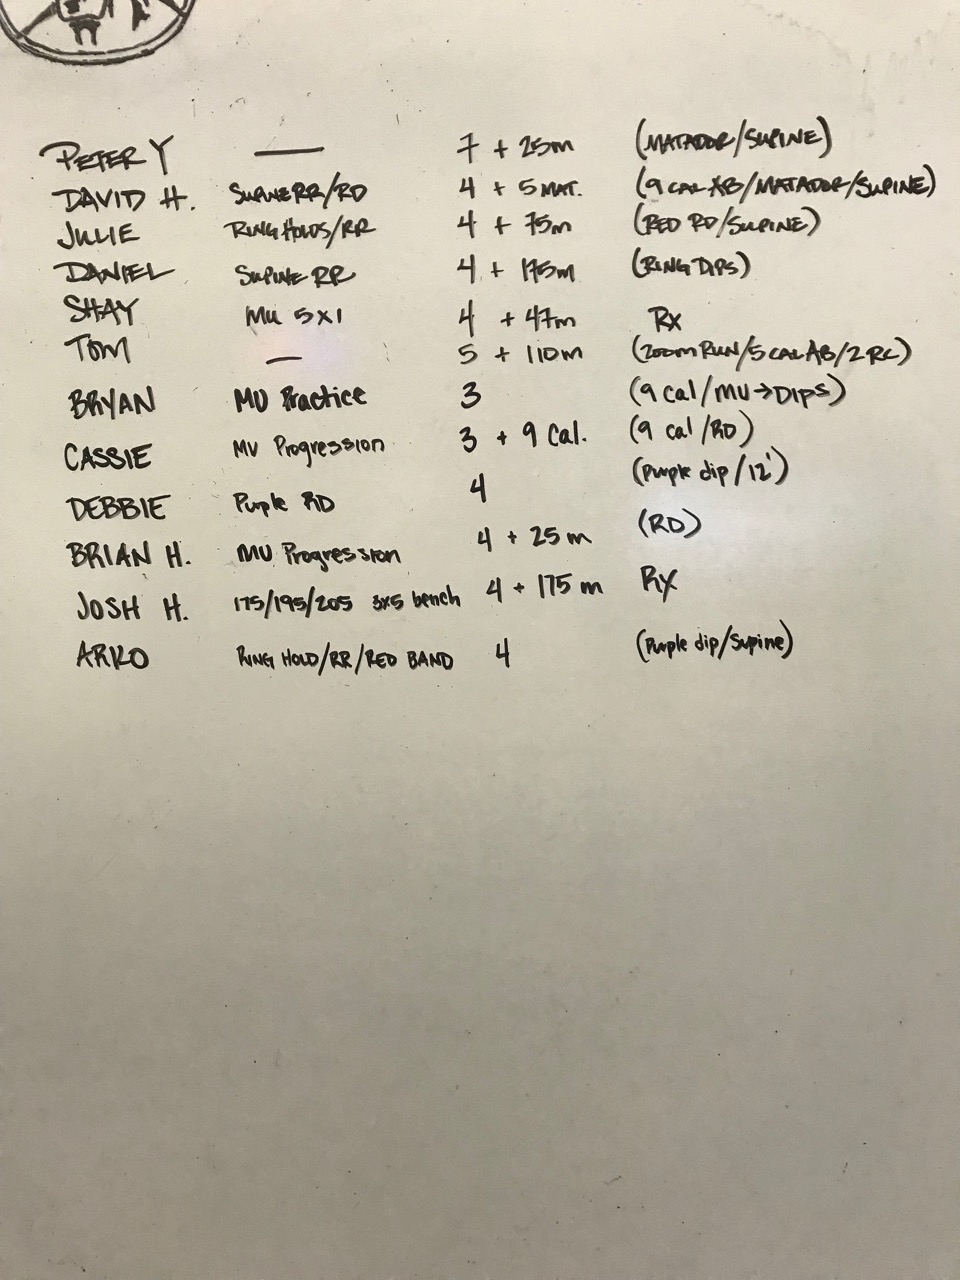 PETER Y — 7 + 25m (MATADOR/SUPINE)
DAVID H. SUPINE RR/RD 4 + 5 MAT. (9 CAL AB/MATADOR/SUPINE)
JULIE RING HOLDS/RR 4 + 75m (RED RD/SUPINE)
DANIEL SUPINE RR 4 + 175m (RING DIPS)
SHAY MU 5X1 4 + 47m Rx
TOM — 5 + 110m (200m RUN/5 CAL AB/2 RC)
BRYAN MU Practice 3 (9 Cal/MU→DIPS)
CASSIE MU Progression 3 + 9 Cal. (9 cal/RD)
DEBBIE Purple RD 4 (Purple dip/12')
BRIAN H. MU Progression 4 + 25 m (RD)
JOSH H. 175/195/205 3x5 bench 4 + 175 m Rx
ARKO RING HOLD/RR/RED BAND 4 (Purple dip/Supine)